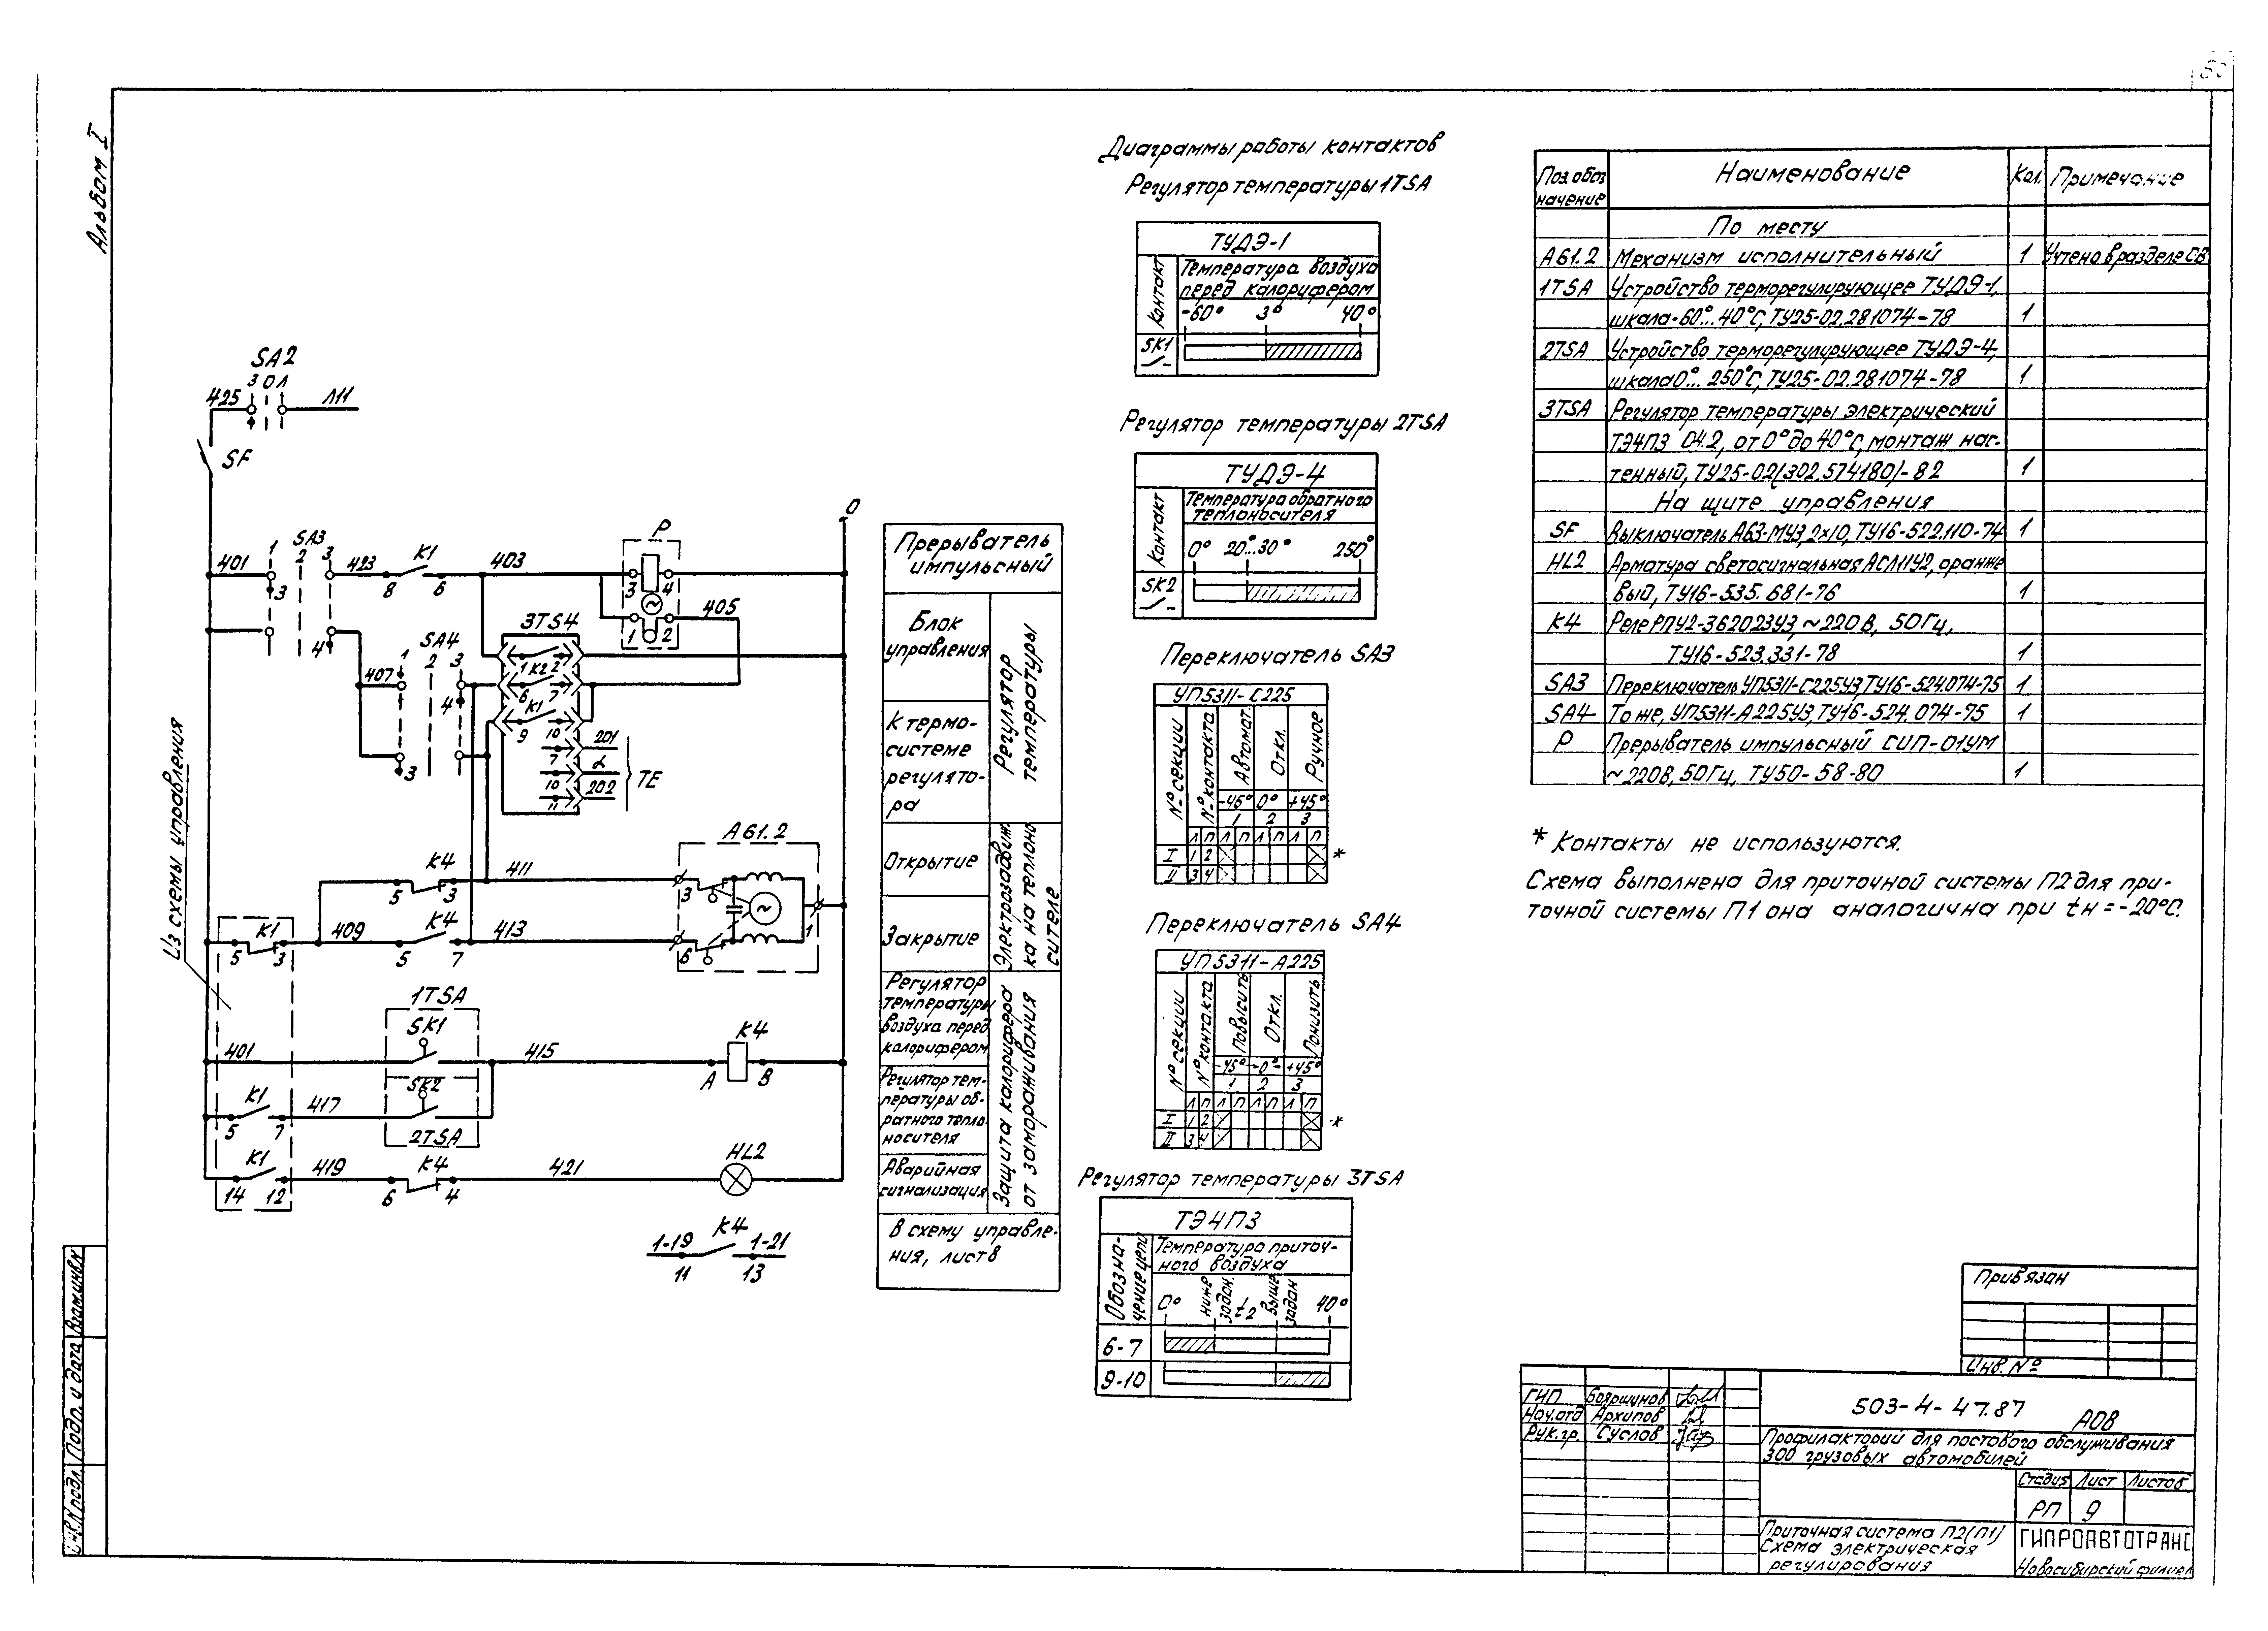 Альбом I
SA2
3 0 Л
425
Л11
SF
0
401
1
SA3
2
3
423
K1
403
P
3
8
6
3
4
405
4
1
2
3TS4
SA4
1
2
3
407
4
3
1 K2 2
6 7
K1
9 10
7
201
10
α
11
202
TE
Из схемы управления
K4
5
3
411
A61.2
3
K1
5
3
409
K4
5
7
413
6
1
1TSA
SK1
401
415
K4
A
B
SK2
K1
5
7
417
2TSA
K1
14
12
419
K4
6
4
421
HL2
K4
1-19
1-21
11
13
Прерыватель
импульсный
Блок
управления
К термо-
системе
регулято-
ра
Регулятор
температуры
Открытие
Закрытие
Электрозадвиж-
ка на теплоно
сителе
Регулятор
температуры
воздуха перед
калорифером
Регулятор тем-
пературы об-
ратного тепло-
носителя
Аварийная
сигнализация
Защита калорифера
от замораживания
В схему управле-
ния, лист 8
Диаграммы работы контактов
Регулятор температуры 1TSA
ТУДЭ-1
Контакт
Температура воздуха
перед калорифером
-60° 3° 40°
SK1
Регулятор температуры 2TSA
ТУДЭ-4
Контакт
Температура обратного
теплоносителя
0° 20°...30° 250°
SK2
Переключатель SA3
УП5311-С225
№ секции
№ контакта
Автомат.
Откл.
Ручное
-45° 0° +45°
1 2 3
Л П Л П Л П Л П
I 1 2
*
II 3 4
Переключатель SA4
УП5311-А225
№ секции
№ контакта
Повысить
Откл.
Понизить
-45° -0°- +45°
1 2 3
Л П Л П Л П Л П
I 1 2
*
II 3 4
Регулятор температуры 3TSA
ТЭ4П3
Обозна-
чение цепи
Температура приточ-
ного воздуха
0°
ниже
задан.
t2
выше
задан
40°
6-7
9-10
Поз. обоз
начение
Наименование
Кол.
Примечание
По месту
A61.2 Механизм исполнительный 1 Учтено в разделе ОВ
1TSA Устройство терморегулирующее ТУДЭ-1,
шкала-60°...40°С, ТУ25-02.281074-78 1
2TSA Устройство терморегулирующее ТУДЭ-4,
шкала 0°... 250°С, ТУ25-02.281074-78 1
3TSA Регулятор температуры электрический
ТЭ4П3 04.2, от 0° до 40°С, монтаж нас-
тенный, ТУ25-02(302.574180)-82 1
На щите управления
SF Выключатель А63-МУ3, 2х10, ТУ16-522.110-74 1
HL2 Арматура светосигнальная АСЛ11У2, оранже
вый, ТУ16-535.681-76 1
K4 Реле РПУ2-36202 3У3, ~220 В, 50 Гц,
ТУ16-523.331-78 1
SA3 Переключатель УП5311-С225У3, ТУ16-524.074-75 1
SA4 То же, УП5311-А225У3, ТУ16-524.074-75 1
P Прерыватель импульсный СИП-01УМ
~220В, 50Гц, ТУ50-58-80 1
* Контакты не используются.
Схема выполнена для приточной системы П2 для при-
точной системы П1 она аналогична при tн = -20°С.
Привязан
Инв. №
ГИП Бояршинов
Нач. отд Архипов
Рук. гр. Суслов
503-4-47.87
А08
Профилакторий для постового обслуживания
300 грузовых автомобилей
Стадия Лист Листов
РП 9
Приточная система П2(П1)
Схема электрическая
регулирования
ГИПРОАВТОТРАНС
Новосибирский филиал
Взам.инв.№
Подп. и дата
Инв.№ подл.